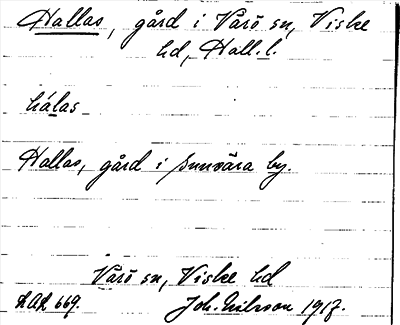 Hallas, gård i Värö sn, Viske
hd, Hall. l.
hálas
Hallas, gård i Sunvära by.
Värö sn, Viske hd
LAL 669. Joh. Nilsson 1917.